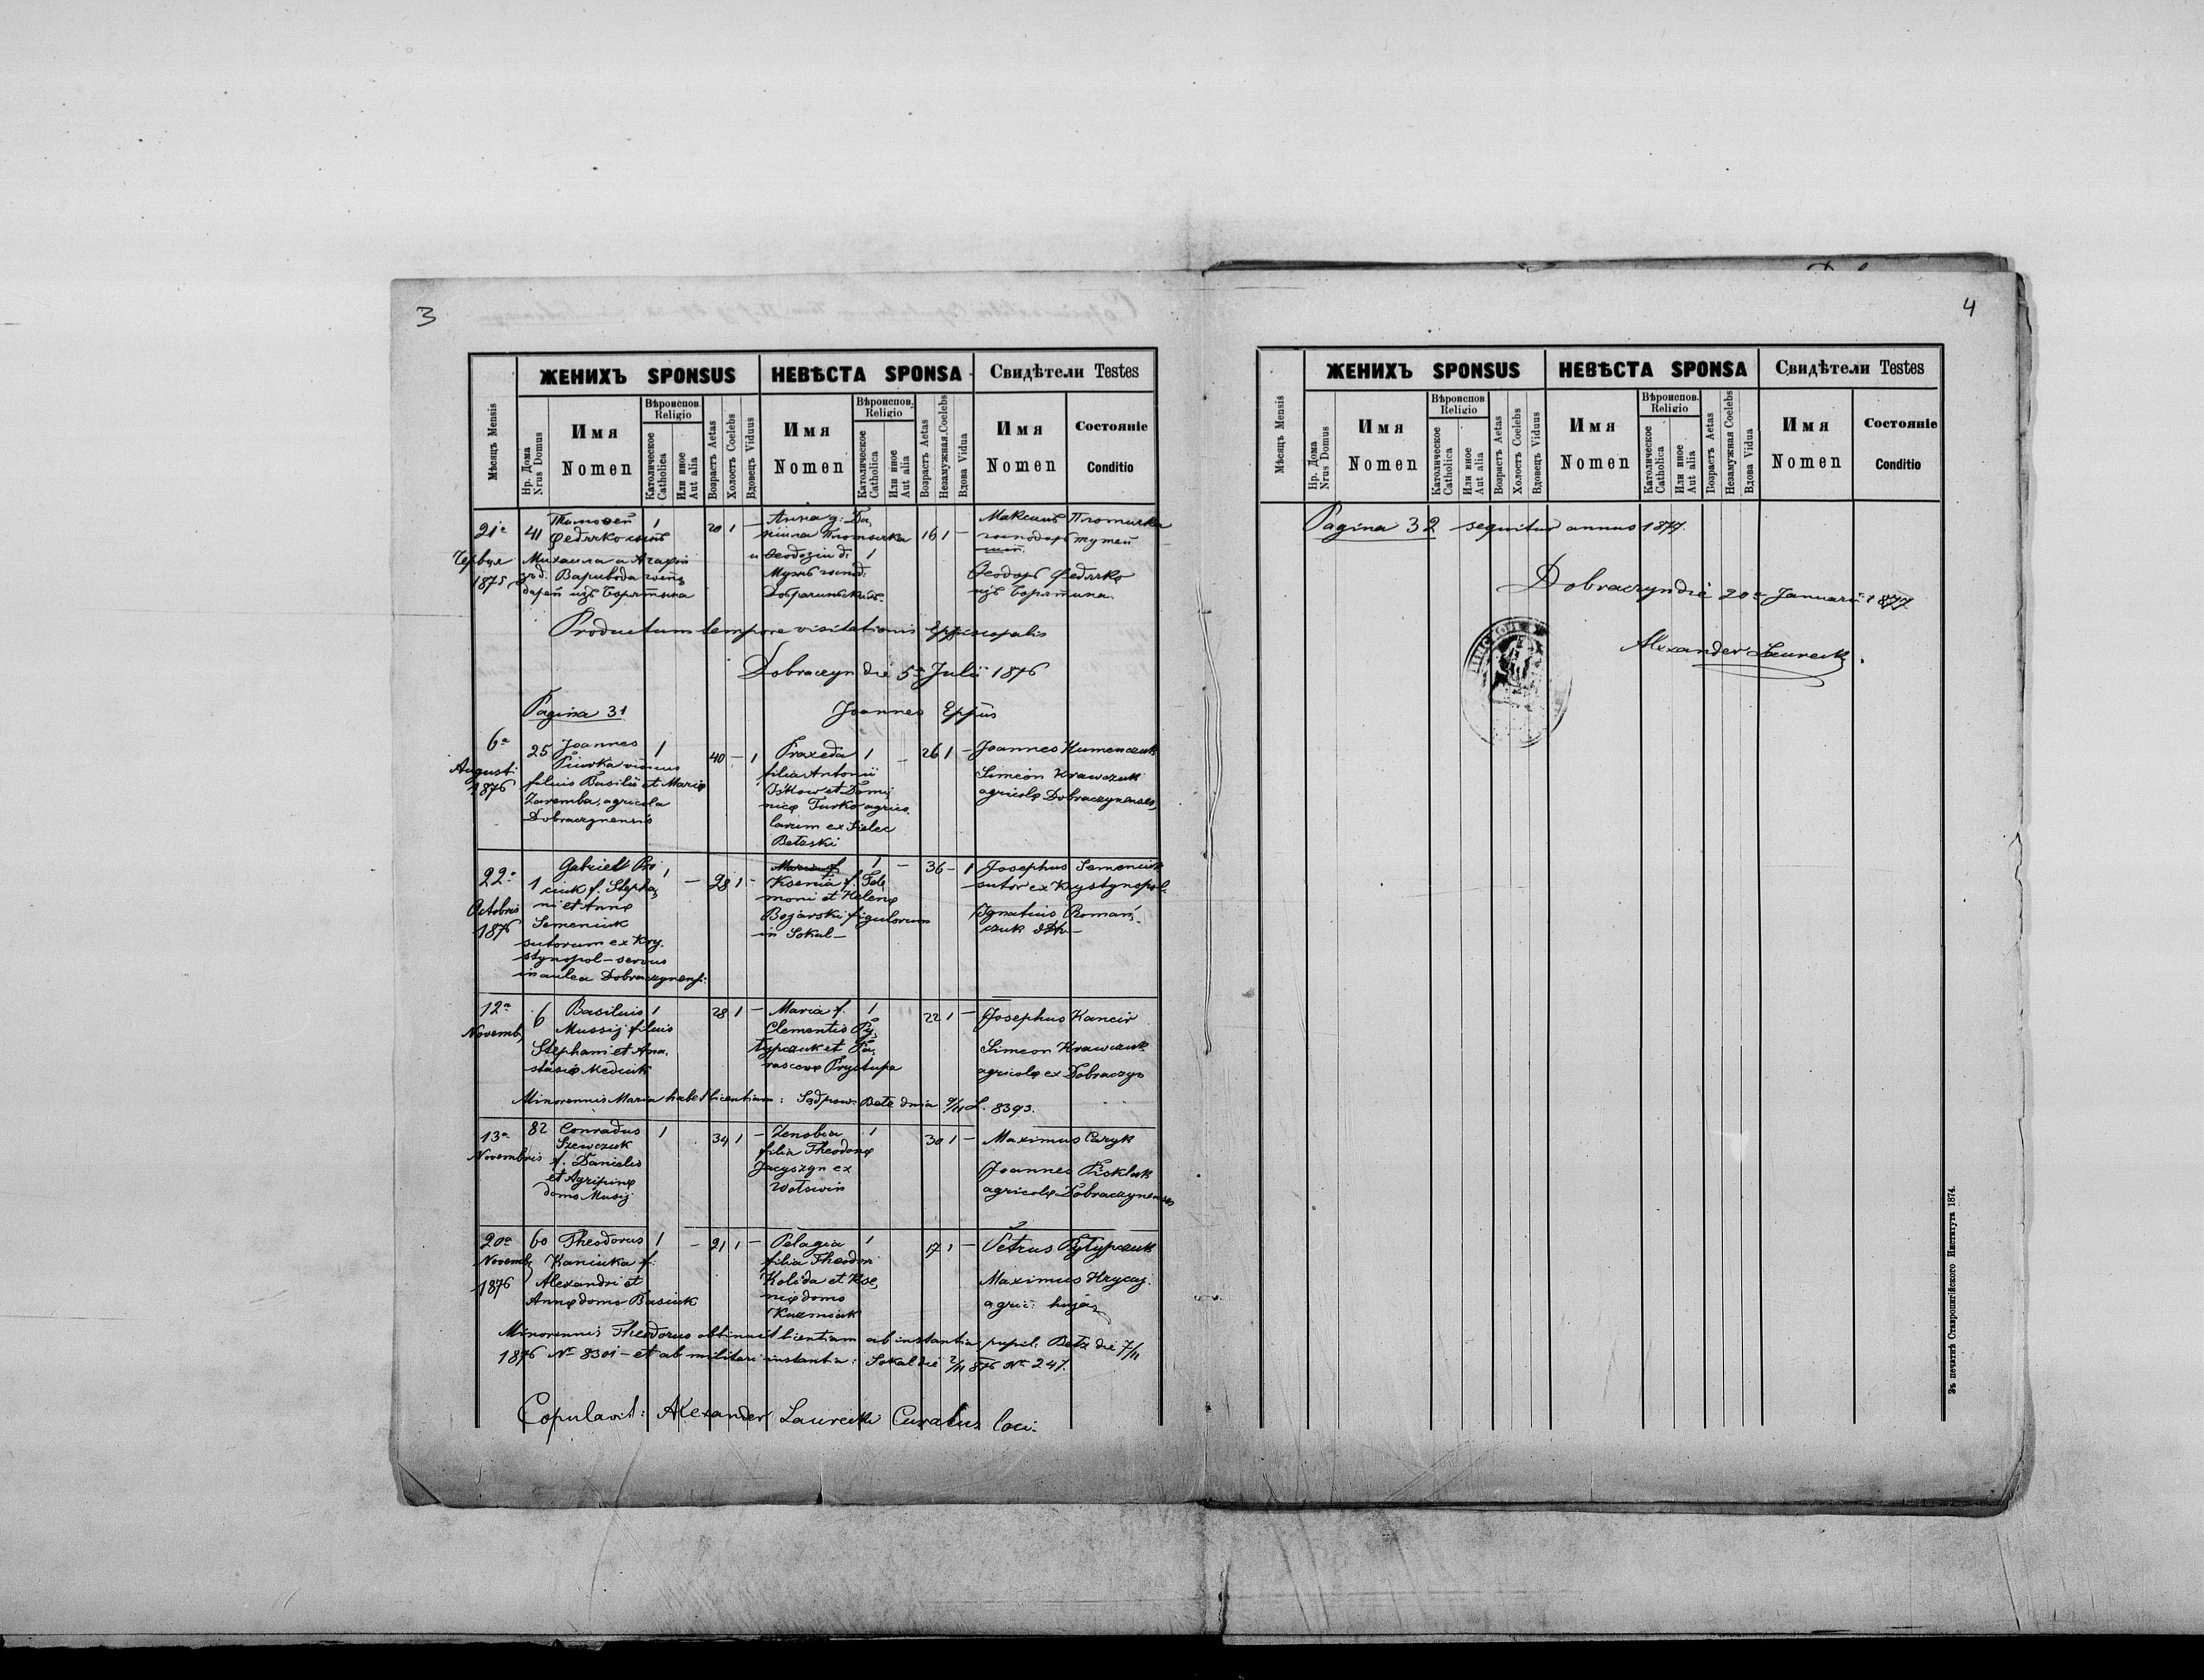 3
ЖЕНИХЪ SPONSUS
НЕВѢСТА SPONSA
Свидѣтели Testes
Мѣсяцъ Mensis
Нр. Дома
Nrus Domus
Имя
Nomen
Вѣроиспов.
Religio
Католическое
Catholica
Или иное
Aut alia
Возрастъ Aetas
Холостъ Coelebs
Вдовецъ Viduus
Имя
Nomen
Вѣроиспов.
Religio
Католическое
Catholica
Или иное
Aut alia
Возрастъ Aetas
Незамужная Coelebs
Вдова Vidua
Имя
Nomen
Состояніе
Conditio
21
1875
41
Тимофей
Федячко сынъ
Михаила и Агафіи
зъ д. Варивода
изъ Борятина
1
20 1 —
Анна
и Феодозіи
1
16 1 —
Максимъ
Феодоръ Федячко
изъ Борятина.
Productum tempore visitationis Eppiscopalis
Dobraczyn die 5ta Julii 1876
Joannes Eppus
Pagina 31
6a
Augusti
1876
25
Joannes
viduus
filius Basilii et Mariæ
Zaremba, agricola
Dobraczynensis
1
40 — 1
Praxeda
filia Antonii
et Domi
nicæ Turko agrico
larum ex Sielec
Bełzski
1 —
26 1 —
Joannes Humenczuk
Simeon Krawczuk
agricolæ Dobraczynenses
22
Octobris
1876
1
Gabriel
f. Stepha
ni et Annæ
Semeniuk
sutorum ex Kry
stynopol — servus
in aulea Dobraczynensi.
1 —
28 1 —
Maria f.
Ksenia f. File
moni et Helenæ
Bojarski figulorum
in Sokal —
1 —
36 — 1
Josephus Semeniuk
sutor ex Krystynopol
Ignatius Roman
czuk
12a
Novemb
6
Basilius
Mussij filius
Stephani et Ana
stasiæ Meduik
1
28 1 —
Maria f.
Clementis Py
typczuk et Pa
rascevæ Prystupa
1
22 1 —
Josephus Kancir
Simeon Krawczuk
agricolæ ex Dobraczyn
Minorennis Maria habet licentiam: Sąd pow. Bełz dnia 9/11 L. 8393.
13a
Novembris
82
Conradus
Szewczuk
f. Danielis
et Agripinæ
domo Musij
1
34 1 —
Zenobia
filia Theodori
Jacyszyn ex
Wołswin
1
30 1 —
Maximus Caryk
Joannes Pisklak
agricolæ Dobraczynenses
20a
Novemb
1876
60
Theodorus
Kaniuka f.
Alexandri et
Annæ domo Basiuk
1 —
21 1 —
Pelagia
filia Theodori
Kolida et Kse
niæ domo
Kuzmiuk
1
17 1 —
Petrus Pytypczuk
Maximus Hrycaj
agric: hujas
Minorennis Theodorus obtinuit licentiam ab instantia pupil. Bełz die 7/11
1876 No 8301 — et ab militari instantia: Sokal die 2/11 876 No 247.
Copulavit: Alexander Laurecki Curatus loci.
4
ЖЕНИХЪ SPONSUS
НЕВѢСТА SPONSA
Свидѣтели Testes
Мѣсяцъ Mensis
Нр. Дома
Nrus Domus
Имя
Nomen
Вѣроиспов.
Religio
Католическое
Catholica
Или иное
Aut alia
Возрастъ Aetas
Холостъ Coelebs
Вдовецъ Viduus
Имя
Nomen
Вѣроиспов.
Religio
Католическое
Catholica
Или иное
Aut alia
Возрастъ Aetas
Незамужная Coelebs
Вдова Vidua
Имя
Nomen
Состояніе
Conditio
Pagina 32 sequitur annus 1877.
Dobraczyn die 20a Januarii 1877
Alexander Laurecki
Зъ печатнѣ Ставропигійского Института 1874.